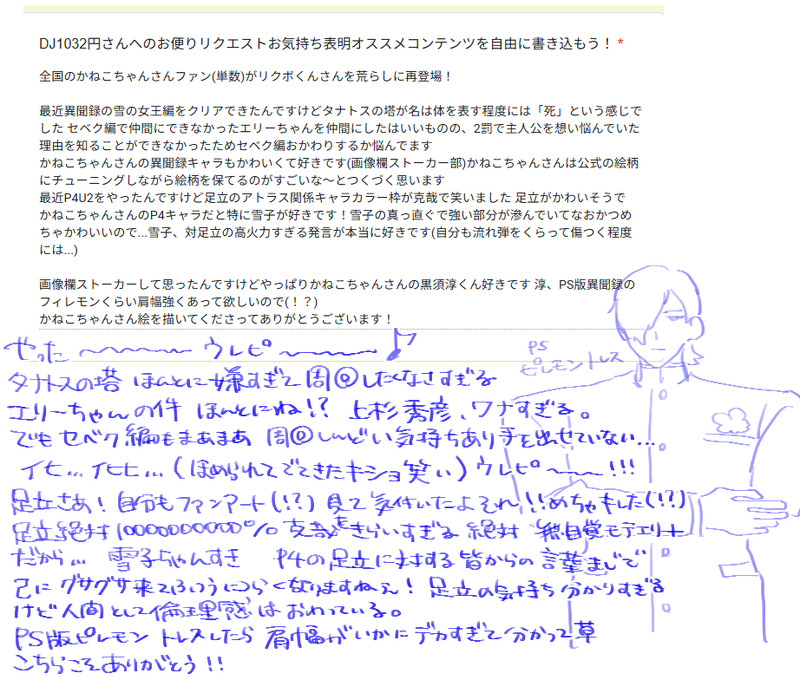 DJ1032円さんへのお便りリクエストお気持ち表明オススメコンテンツを自由に書き込もう！ *
全国のかねこちゃんさんファン(単数)がリクボくんさんを荒らしに再登場！
最近異聞録の雪の女王編をクリアできたんですけどタナトスの塔が名は体を表す程度には「死」という感じで
した セベク編で仲間にできなかったエリーちゃんを仲間にしたはいいものの、2罰で主人公を想い悩んでいた
理由を知ることができなかったためセベク編おかわりするか悩んでます
かねこちゃんさんの異聞録キャラもかわいくて好きです(画像欄ストーカー部)かねこちゃんさんは公式の絵柄
にチューニングしながら絵柄を保てるのがすごいな～とつくづく思います
最近P4U2をやったんですけど足立のアトラス関係キャラカラー枠が克哉で笑いました 足立がかわいそうで
かねこちゃんさんのP4キャラだと特に雪子が好きです！雪子の真っ直ぐで強い部分が滲んでいてなおかつめ
ちゃかわいいので...雪子、対足立の高火力すぎる発言が本当に好きです(自分も流れ弾をくらって傷つく程度
には...)
画像欄ストーカーして思ったんですけどやっぱりかねこちゃんさんの黒須淳くん好きです 淳、PS版異聞録の
フィレモンくらい肩幅強くあって欲しいので(！？)
かねこちゃんさん絵を描いてくださってありがとうございます！
やった〜〜〜〜 ウレピ〜〜〜〜♪
PS
ピレモントレス
タナトスの塔 ほんとに嫌すぎて 周回したくなさすぎる
エリーちゃんの件 ほんとにね!? 上杉秀彦、ワナすぎる。
でもセベク編もまあまあ 周回しんどい気持ちあり手を出せていない...
イヒ... イヒヒ...(ほめられてでてきたキショ笑い)ウレピ〜〜〜!!!
足立さあ! 自分もファンアート(!?)見て気付いたよそれ!!めちゃキレた(!?)
足立絶対10000000000%克哉をきらいすぎる 絶対 無自覚モテエリート
だから... 雪子ちゃんすき P4の足立に対する皆からの言葉まじで
己にグサグサ来てふつうにつらくなりますねぇ! 足立の気持ち分かりすぎる
けど人間として倫理感はおわっている。
PS版ピレモントレスしたら肩幅がいかにデカすぎて分かって草
こちらこそありがとう!!